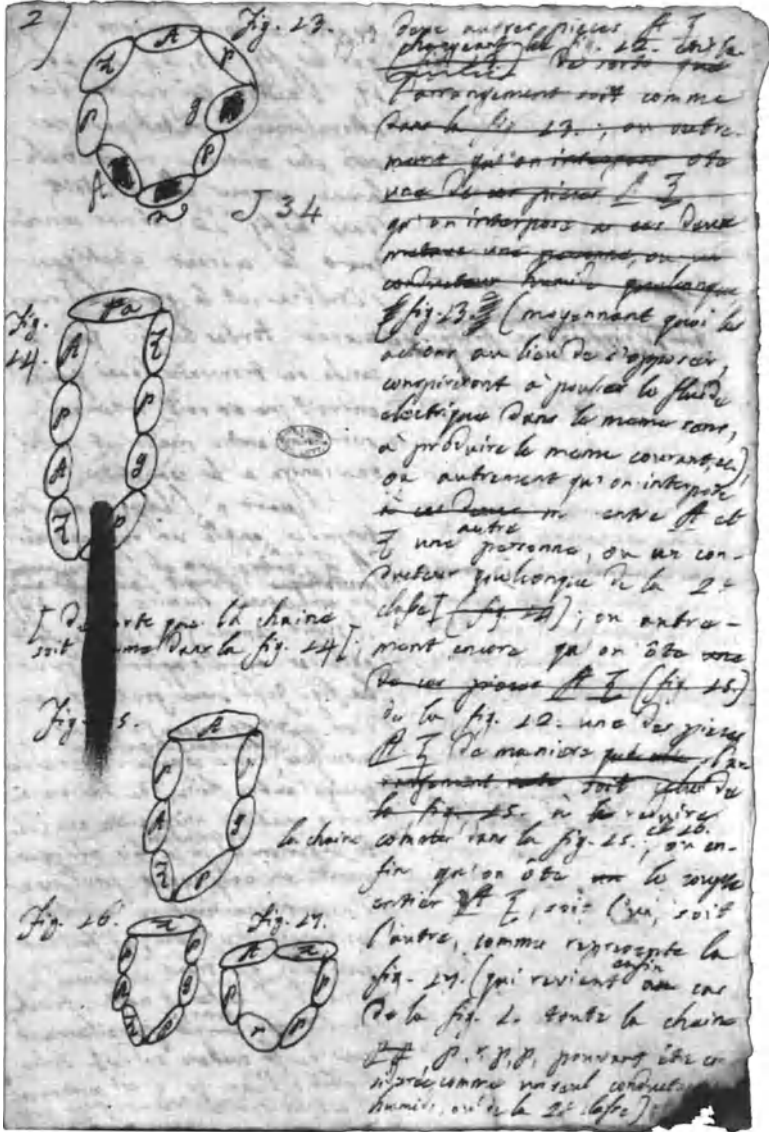 2)
Fig. 13.
A
Z
P
P
g
P
A
J 34
Fig.
14.
pa
A
Z
P
P
A
g
Z
P
[ de sorte que la chaine
soit comme dans la fig. 14 [
Fig. 15.
A
P
A
g
Z
P
la chaine
Fig. 16
Fig. 17.
deux autres pieces A Z
fig. 12.
de sorte que
l'arrangement soit comme
dans la fig. 13. ; ou autre-
ment qu'on interpose ote
une de ces pieces A Z
qu'on interpose a ces deux
metaux une personne, ou un
conducteur humide quelconque
fig. 13. (moyennant quoi les
actions au lieu de s'opposer,
conspireront a pousser le fluide
electrique dans le meme sens,
a produire le meme courant, &c.)
ou autrement qu'on interpose
à ces deux m entre A et
Z une autre personne, ou un con-
ducteur quelconque de la 2e
classe [ (fig. 14) ; ou autre-
ment encore qu'on ôte une
de ces pieces A Z (fig. 15.)
de la fig. 12. une des pieces
A Z de maniere l'ar-
rangement soit celui de
la fig. 15. à la reduire
comme dans la fig. 15. et 16. ; ou en-
fin qu'on ôte un le couple
entier A Z, soit l'un, soit
l'autre, comme represente la
fig. 17. (qui revient enfin au cas
de la fig. 1. toute la chaine
p, r, p, p, pouvant être co
comme un seul conducteur
humide, ou de la 2e classe)